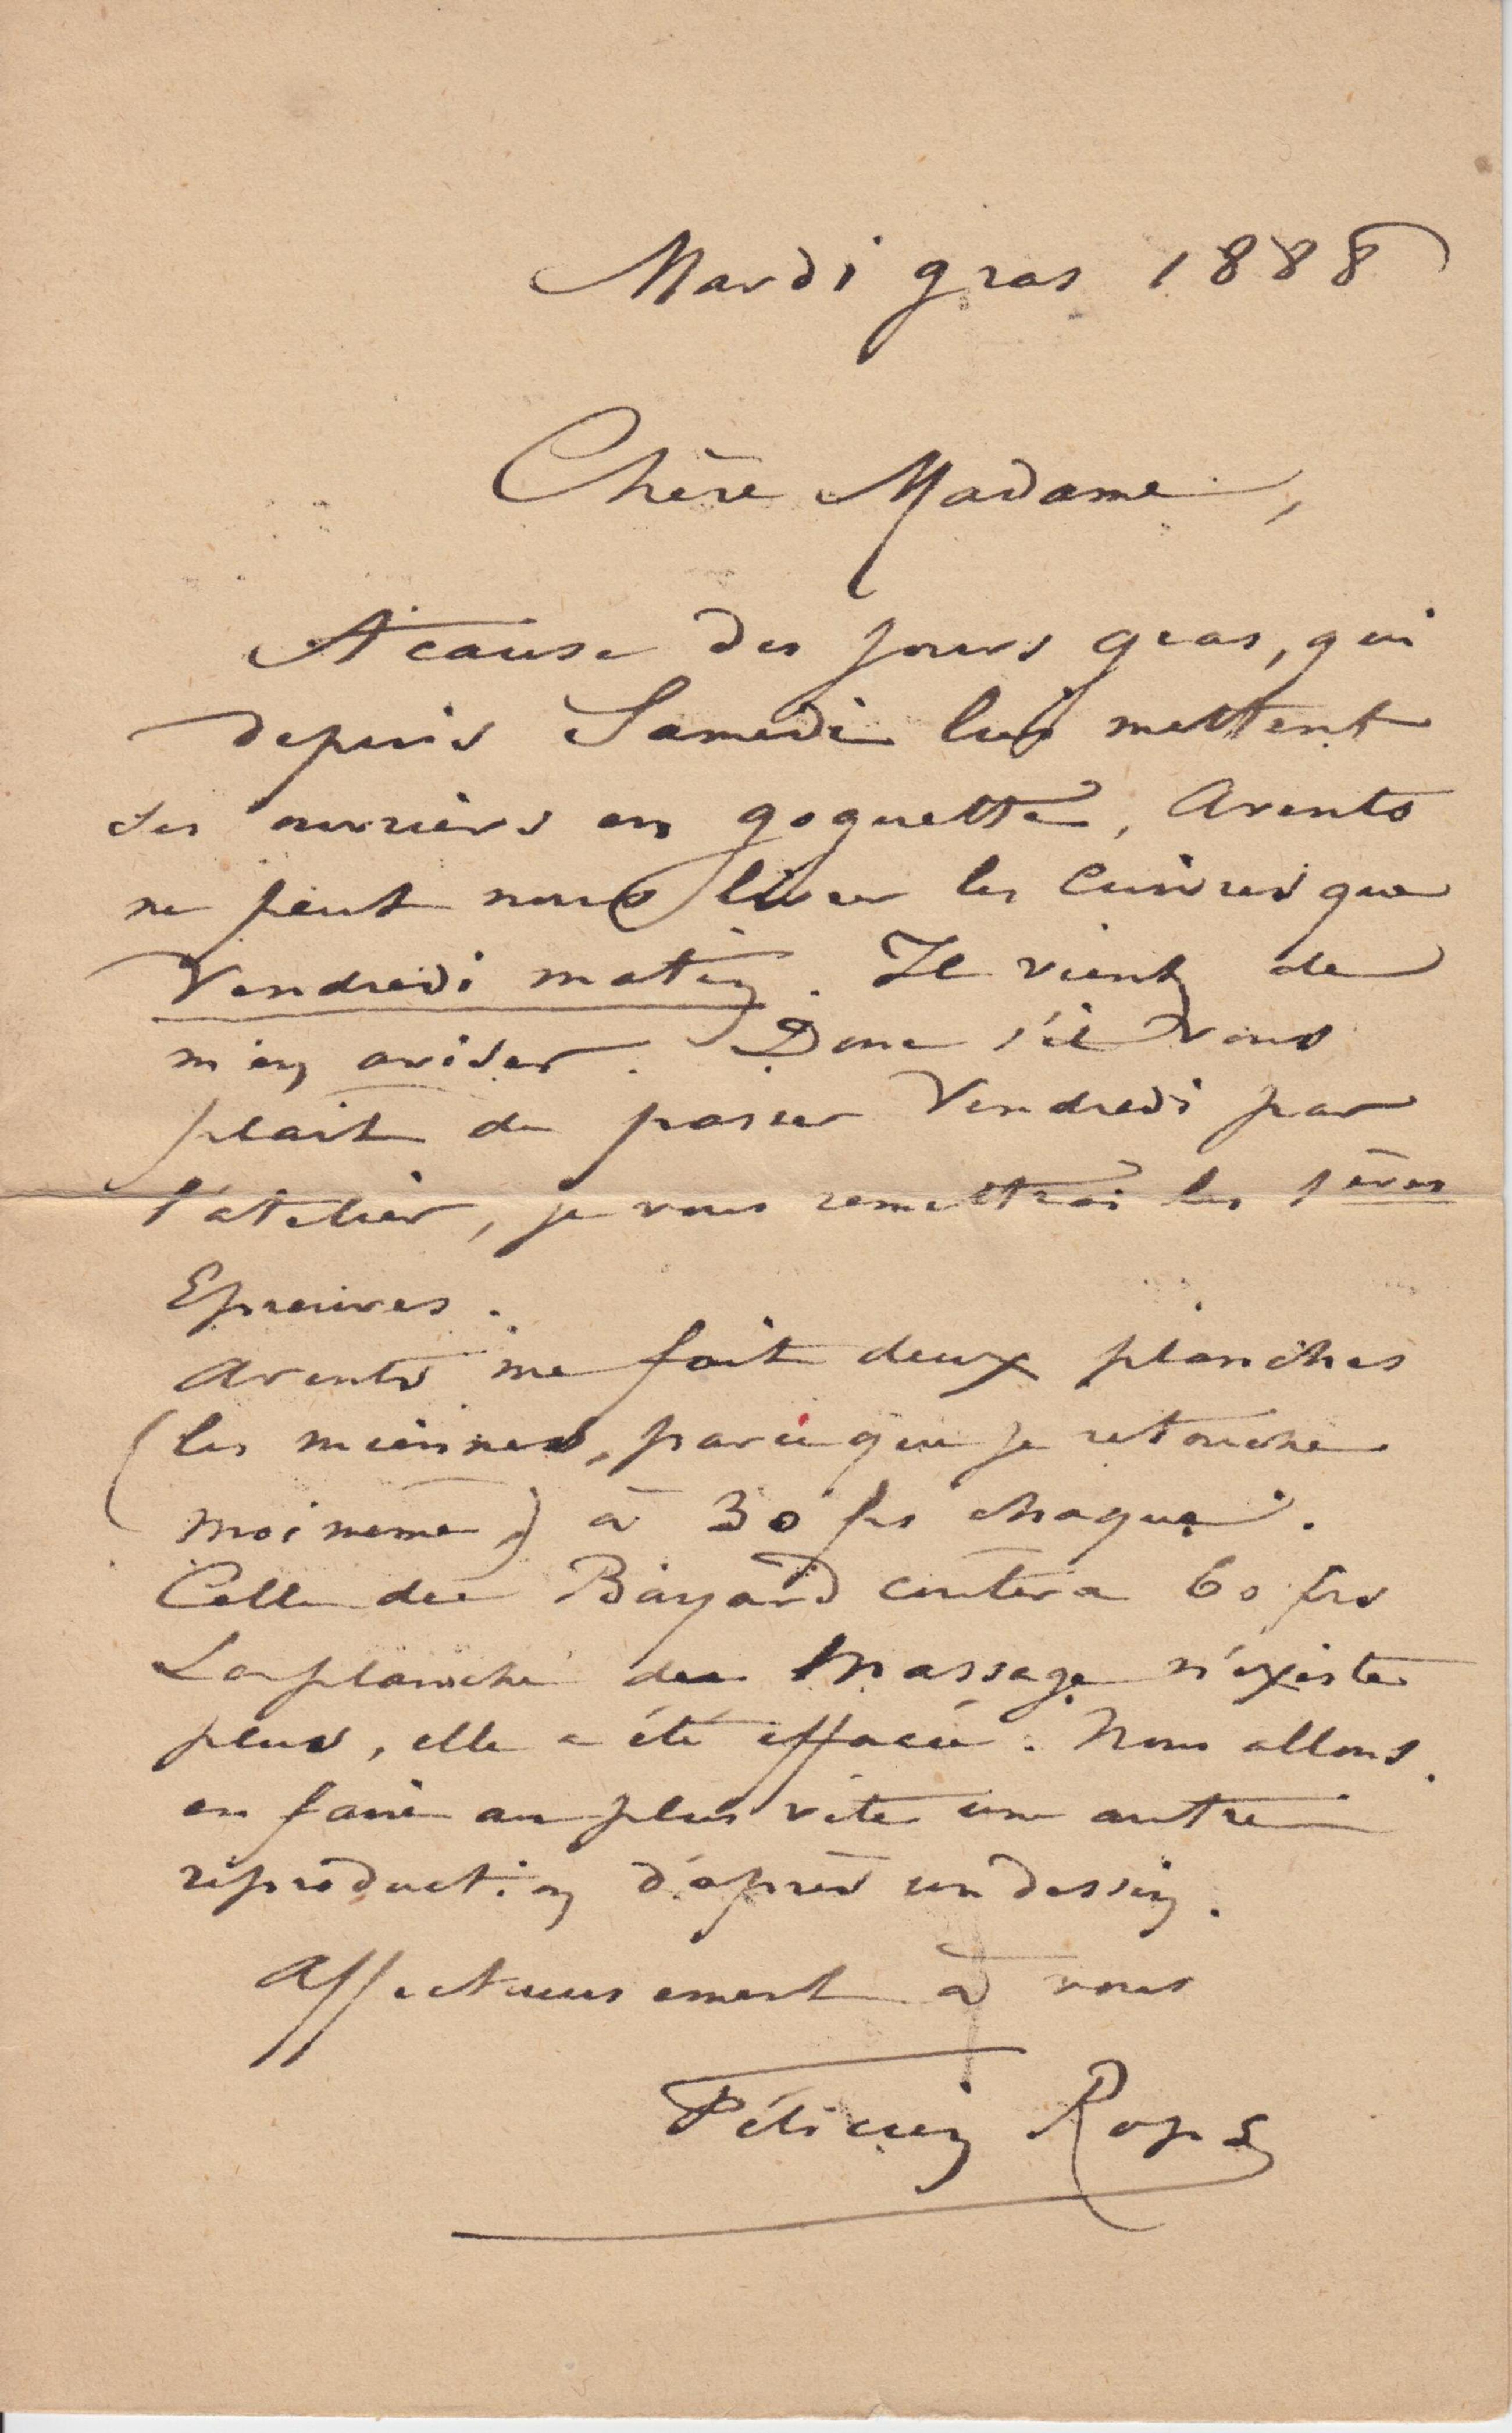 Mardi gras 1888
Chère Madame,
A cause des jours gras, qui
depuis Samedi lui mettent
ses ouvriers en goguette, Arents
ne peut nous livrer les cuivres que
Vendredi matin. Il vient de
m'en aviser. Donc s'il vous
plait de passer Vendredi par
l'atelier, je vous remettrai les 1ères
Epreuves.
Arents me fait deux planches
(les miennes, parceque je retouche
moi même) à 30 frs chaque.
Celle du Bayard coutera 60 frs
La planche du Massage n'existe
plus, elle a été effacée. Nous allons
en faire au plus vite une autre
réproduction d'après un dessin.
Affectueusement à vous
Félicien Rops